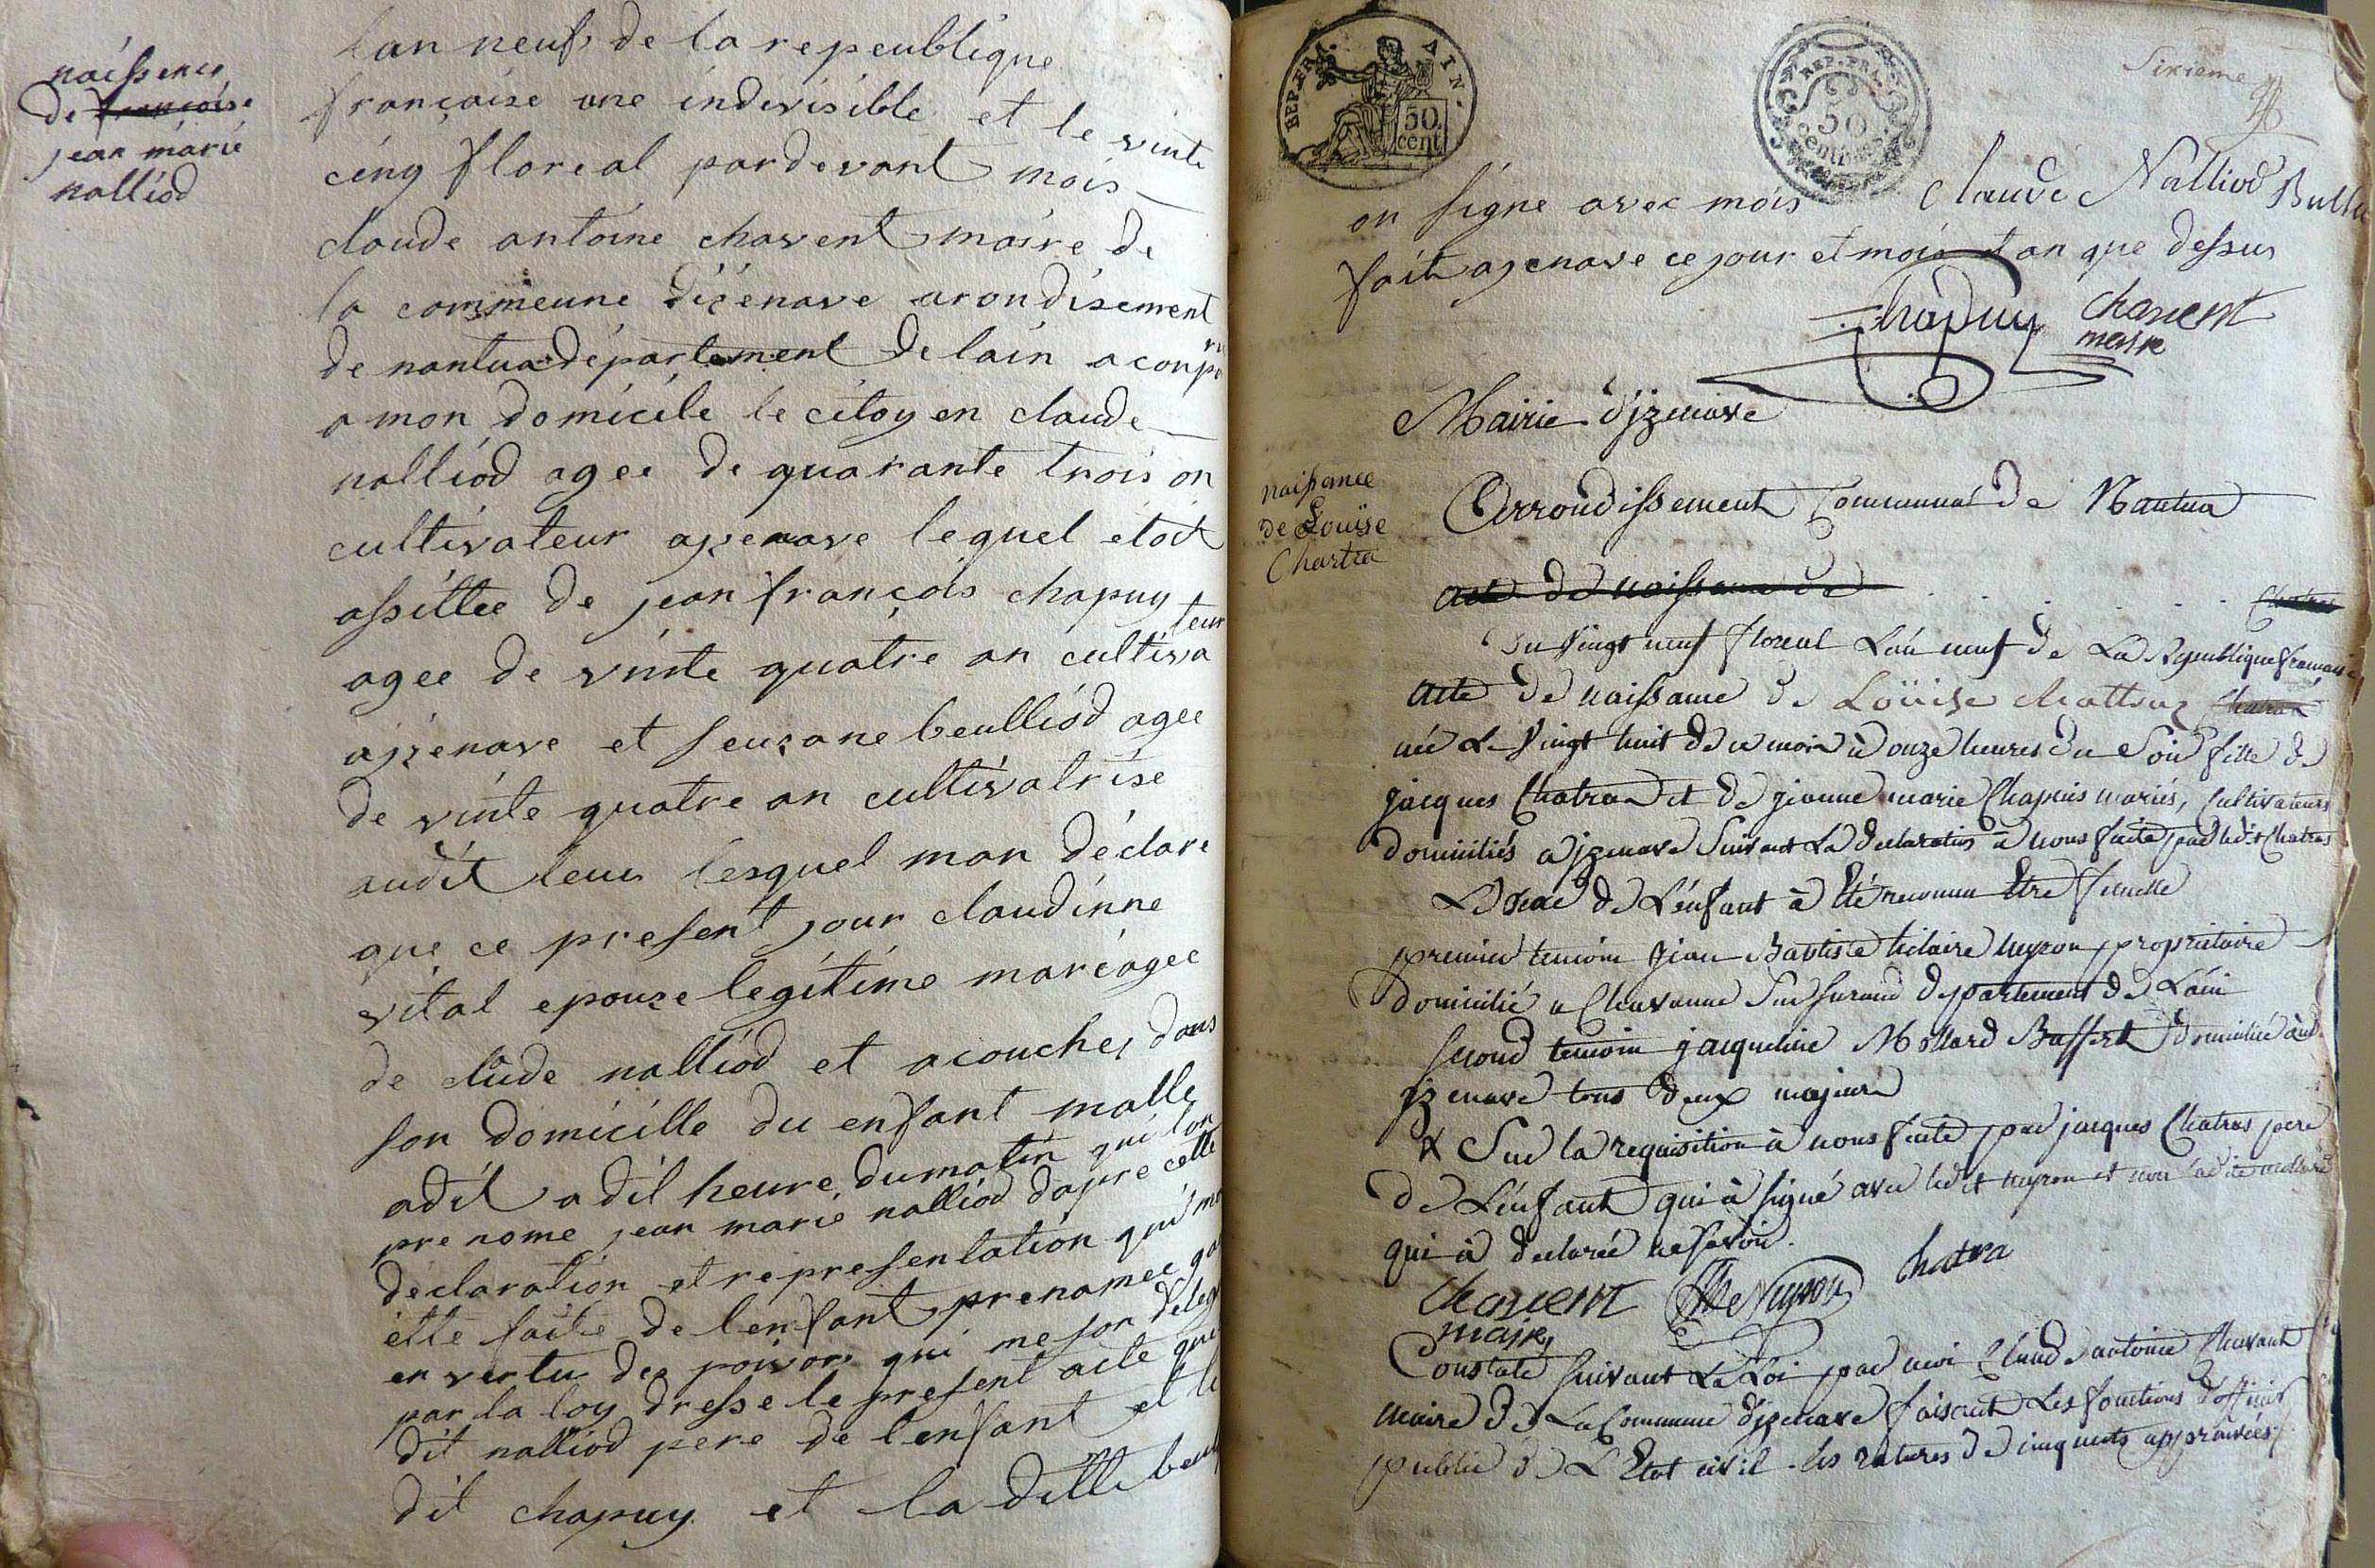 naissence
de françoise
jean marie
nalliod
lan neuf de la repeublique
française une indivisible et le vinte
cinq floreal pardevant mois
claude antoine chavent maire de
la commeune dizenave arondisement
de nantua departement de lain a conparu
a mon domicile le citoyen claude
nalliod agee de quarante trois an
cultivateur azenave lequel étoit
assittee de jean françois chapuy
agee de vinte quatre an cultivateur
aizenave et seuzane beulliod agee
de vinte quatre an cultivatrise
audit leui lesquel mon declare
que ce present jour claudinne
vital epouze legitime mariagee
de clude nalliod et acouchez dans
son domicille du enfant malle
adil a dil heure du matin qui lon
prenome jean marie nalliod dapre cette
declaration et representation qui ma
ette faite de lenfant prenomee jai
en vertu des poivoir qui me son deleg
par la loy dresse le present acte que
dit nalliod pere de lenfant et le
dit chapuy et la ditte beull
REP.FRA. AIN.
50
cent
REP.FRA.
50
centimes
Sixieme
on signe avec mois Claude Nalliod Bulli
fait azenave ce jour et mois et an que dessus
Chapuy chavent
maire
Mairie d'jzenave
naissance
de Louïse
Chartra
Arrondissement Communal de Nantua
acte de naissance de . . . . . . Chatras
Du vingt neuf floreal L'an neuf de La Republique francaise
acte de naissance de Loüise chattraz Chatras
née Le vingt huit de ce mois à onze heures du Soir fille de
jacques Chatras et de jeanne marie Chapuis mariés, Cultivateurs
domiciliés a jzenave Suivant La declaration à nous faite par ledit Chatras
Le sexe de L'enfant à Eté reconnu Etre femelle
premier temoin jean Baptiste hilaire nyron proprietaire
domicilié a Chavanne Sur Surand departement de L'ain
second temoin jacqueline Mollard Buffert domiciliée aud.
jzenave tous deux majeurs
X Sur la requisition à nous faite par jacques Chatras pere
de L'enfant qui à signé avec ledit nyron et non ladite mollard
qui à declarée ne savoir.
chavent Nyron chatra
maire
Constaté suivant La Loi par moi Claude antoine Chavant
maire de La Commune d'jzenave faisant Les fonctions d'officier
public de L'Etat civil - les ratures de cinq mots approuvées